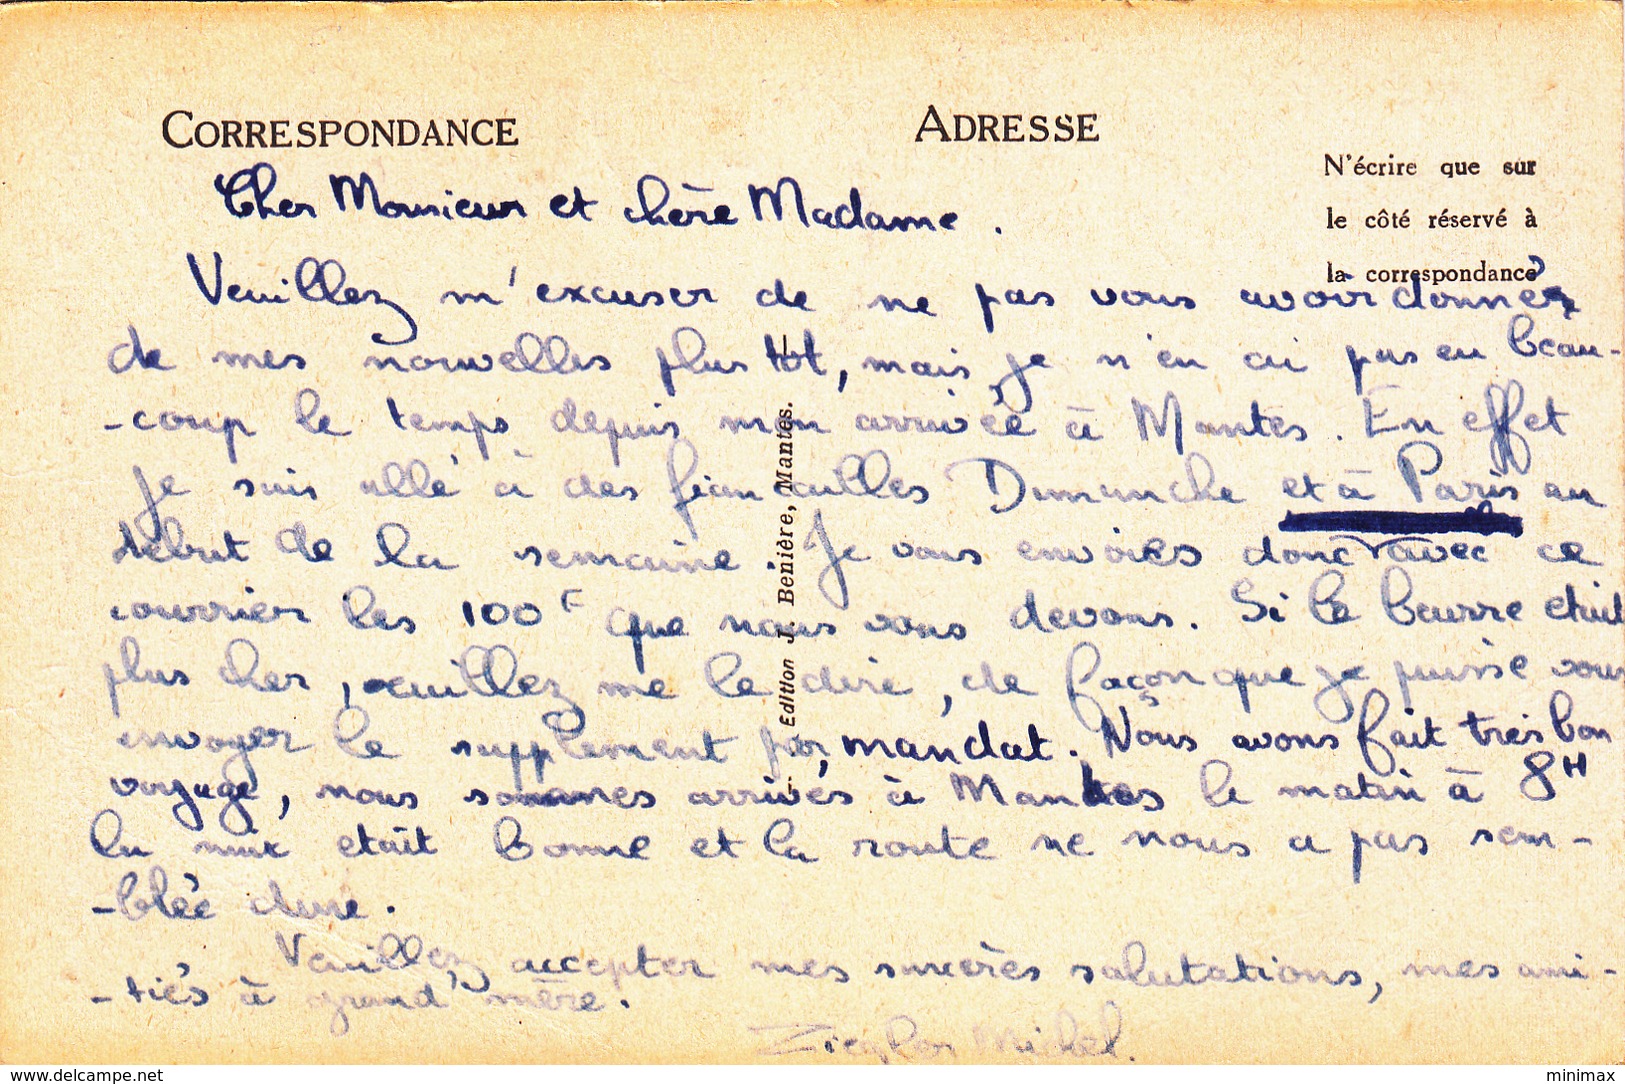 CORRESPONDANCE
ADRESSE
N'écrire que sur
le côté réservé à
la correspondance
Cher Monsieur et chère Madame.
Veuillez m'excuser de ne pas vous avoir donner
de mes nouvelles plus tôt, mais je n'en ai pas eu beau-
-coup le temps depuis mon arrivée à Mantes. En effet
je suis allé à des fiancailles Dimanche et à Paris au
début de la semaine. Je vous envoies donc avec ce
courrier les 100F que nous vous devons. Si le beurre était
plus cher, veuillez me le dire, de façon que je puisse vous
envoyer le supplement par mandat. Nous avons fait très bon
voyage, nous sommes arrivés à Mantes le matin à 8H
la nuit etait bonne et la route ne nous a pas sem-
-blée dure.
Veuillez accepter mes sincères salutations, mes ami-
-tiés à grand'mère.
Ziegler Michel.
Edition J. Benière, Mantes.
www.delcampe.net
minimax